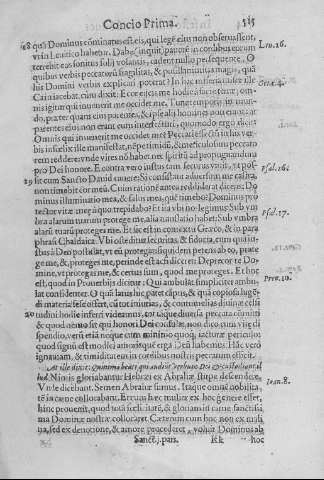 Concio Prima. 515
18 quā Dominus cōminatus est eis, qui legē eius non obseruassent,
vt in Leuitico habetur. Dabo, inquit, pauorē in cordibus eorum
terrebit eos sonitus folij volantis, cadent nullo persequente. O
quibus verbis peccatorū fragilitas, & pusillanimitas magis, quā
his Domini verbis explicari poterat? In hac
Cain iacebat, cùm dixit: Ecce eijcis me hodie à facie terræ, om-
nis igitur qui inuenerit me occidet me. Tunc temporis in mun-
do, præter quam eius parentes, & ipse alij homines non erant, at
parentes sui non erant eum interfecturi, quomodo ergo dicit:
Omnis qui inuenerit me occidet me? Peccati
bis infelix ille manifestat, népe timidū, & meticulosum peccato
rem reddere, vnde vires nō habet nec spiritū ad propugnandum
pro Dei honore. E contra vero iustus
19 sit cum Sancto Dauid canere: Si consistant aduersum me castra,
non timebit cor meū. Cuius rationē antea reddiderat dicens: Do
minus illuminatio mea, & salus mea, quē timebo? Dominus pro
tector vitæ meæ à quo trepidabo? Et ita vbi nos legimus: Sub vm
bra alarum tuarum protege me, alia translatio habet: Sub vmbra
alarū tuarū proteges me. Et sic est in contextu Græco, & in para
phrasi Chaldaica. Vbi ostēditur securitas, & fiducia, cum qua iu-
stus à Deo postulat, vt eū protegat: siquidem petens ab eo, prote
ge me, & proteges me, perinde est ac si diceret: Deprecor te Do-
mine, vt protegas me, & certus sum, quod me proteges. Et hoc
est, quod in Prouerbijs dicitur: Qui ambulat simpliciter ambu-
lat confidenter. O quā latus hic patet cāpus, & quā copiosa luge
di materia sese offert, cū tot iniurias, & contumelias diuinæ celsi
20 tudini hodie inferri videamus, tot tāque diuersa peccata cōmitti
& quod vix nō sit qui honori Dei cōsulat, non dico cum vitæ dis
spendio, verū etiā neque cum minimo quoq; iacturæ periculo:
quod signū est modicū amorē nos erga Deū habemus. Hāc verò
ignauiam, & timiditatem in cordibus nostris peccatum efficit.
At ille dixit: Quinimo beati qui audiūt verbum Dei & custodiunt il-
lud. Nimis gloriabantur Hebræi ex Abrahæ stirpe descendere,
Vnde dicebant: Semen Abrahæ sumus. Itaque omnē nobilita-
tē in carne collocabant. Errum hæc multis ex hoc genere esset,
hinc prouenit, quod totā felicitatē, & gloriam in carne sanctissi
ma Dominæ nostræ collocaret. Cæterum cum hoc non ex mali
tia, sed ex deuotione, & amore procederet, voluit Dominus ab
Sanct. j. pars. Kk hoc
Leu. 26.
Gen. 4.
Psal. 26.
Psal. 17.
Prou. 10.
Ioan. 8.